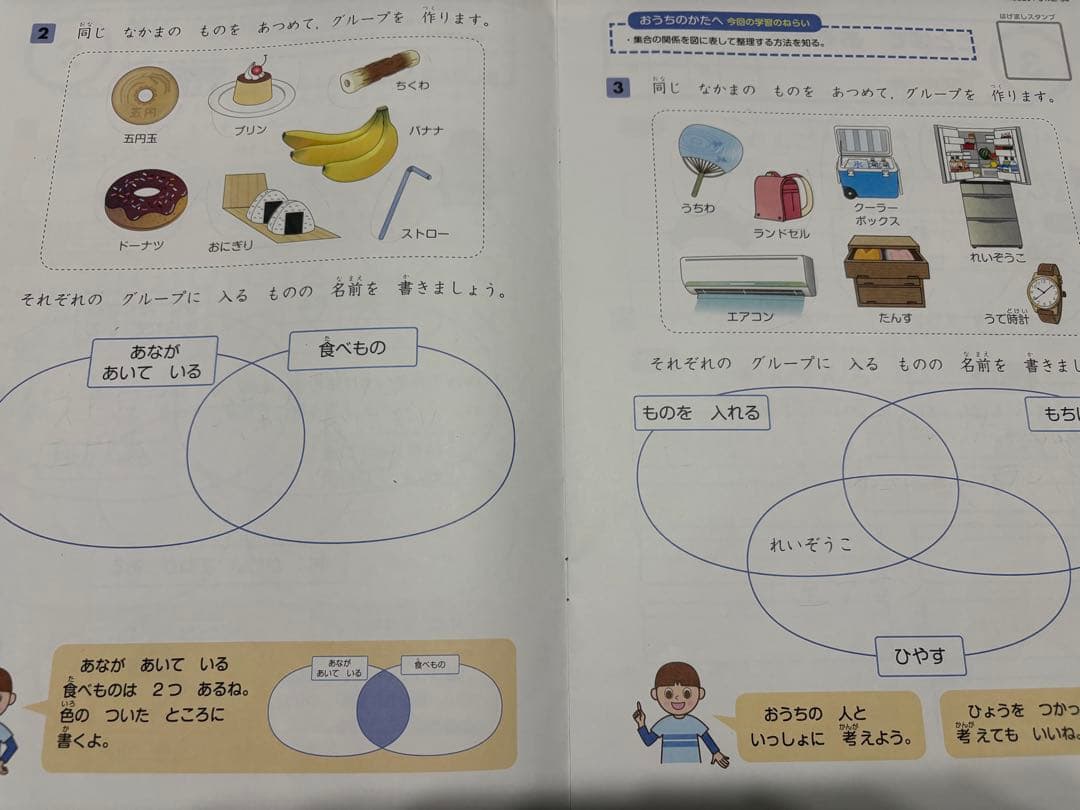 2 同じ なかまの ものを あつめて、グループを 作ります。
おな
つく
五円玉
プリン
ちくわ
バナナ
ドーナツ
おにぎり
ストロー
それぞれの グループに 入る ものの 名前を 書きましょう。
なまえ
か
あなが
あいて いる
食べもの
た
あなが あいて いる
食べものは 2つ あるね。
た
色の ついた ところに
いろ
書くよ。
か
あなが
あいて いる
食べもの
おうちのかたへ 今回の学習のねらい
・集合の関係を図に表して整理する方法を知る。
はげ間しスタンプ
3 同じ なかまの ものを あつめて、グループを 作ります。
おな
つく
うちわ
ランドセル
クーラー
ボックス
れいぞうこ
エアコン
たんす
うで時計
どけい
それぞれの グループに 入る ものの 名前を 書きまし
なまえ
か
ものを 入れる
もち
れいぞうこ
ひやす
おうちの 人と
いっしょに 考えよう。
かんが
ひょうを つかっ
考えても いいね。
かんが